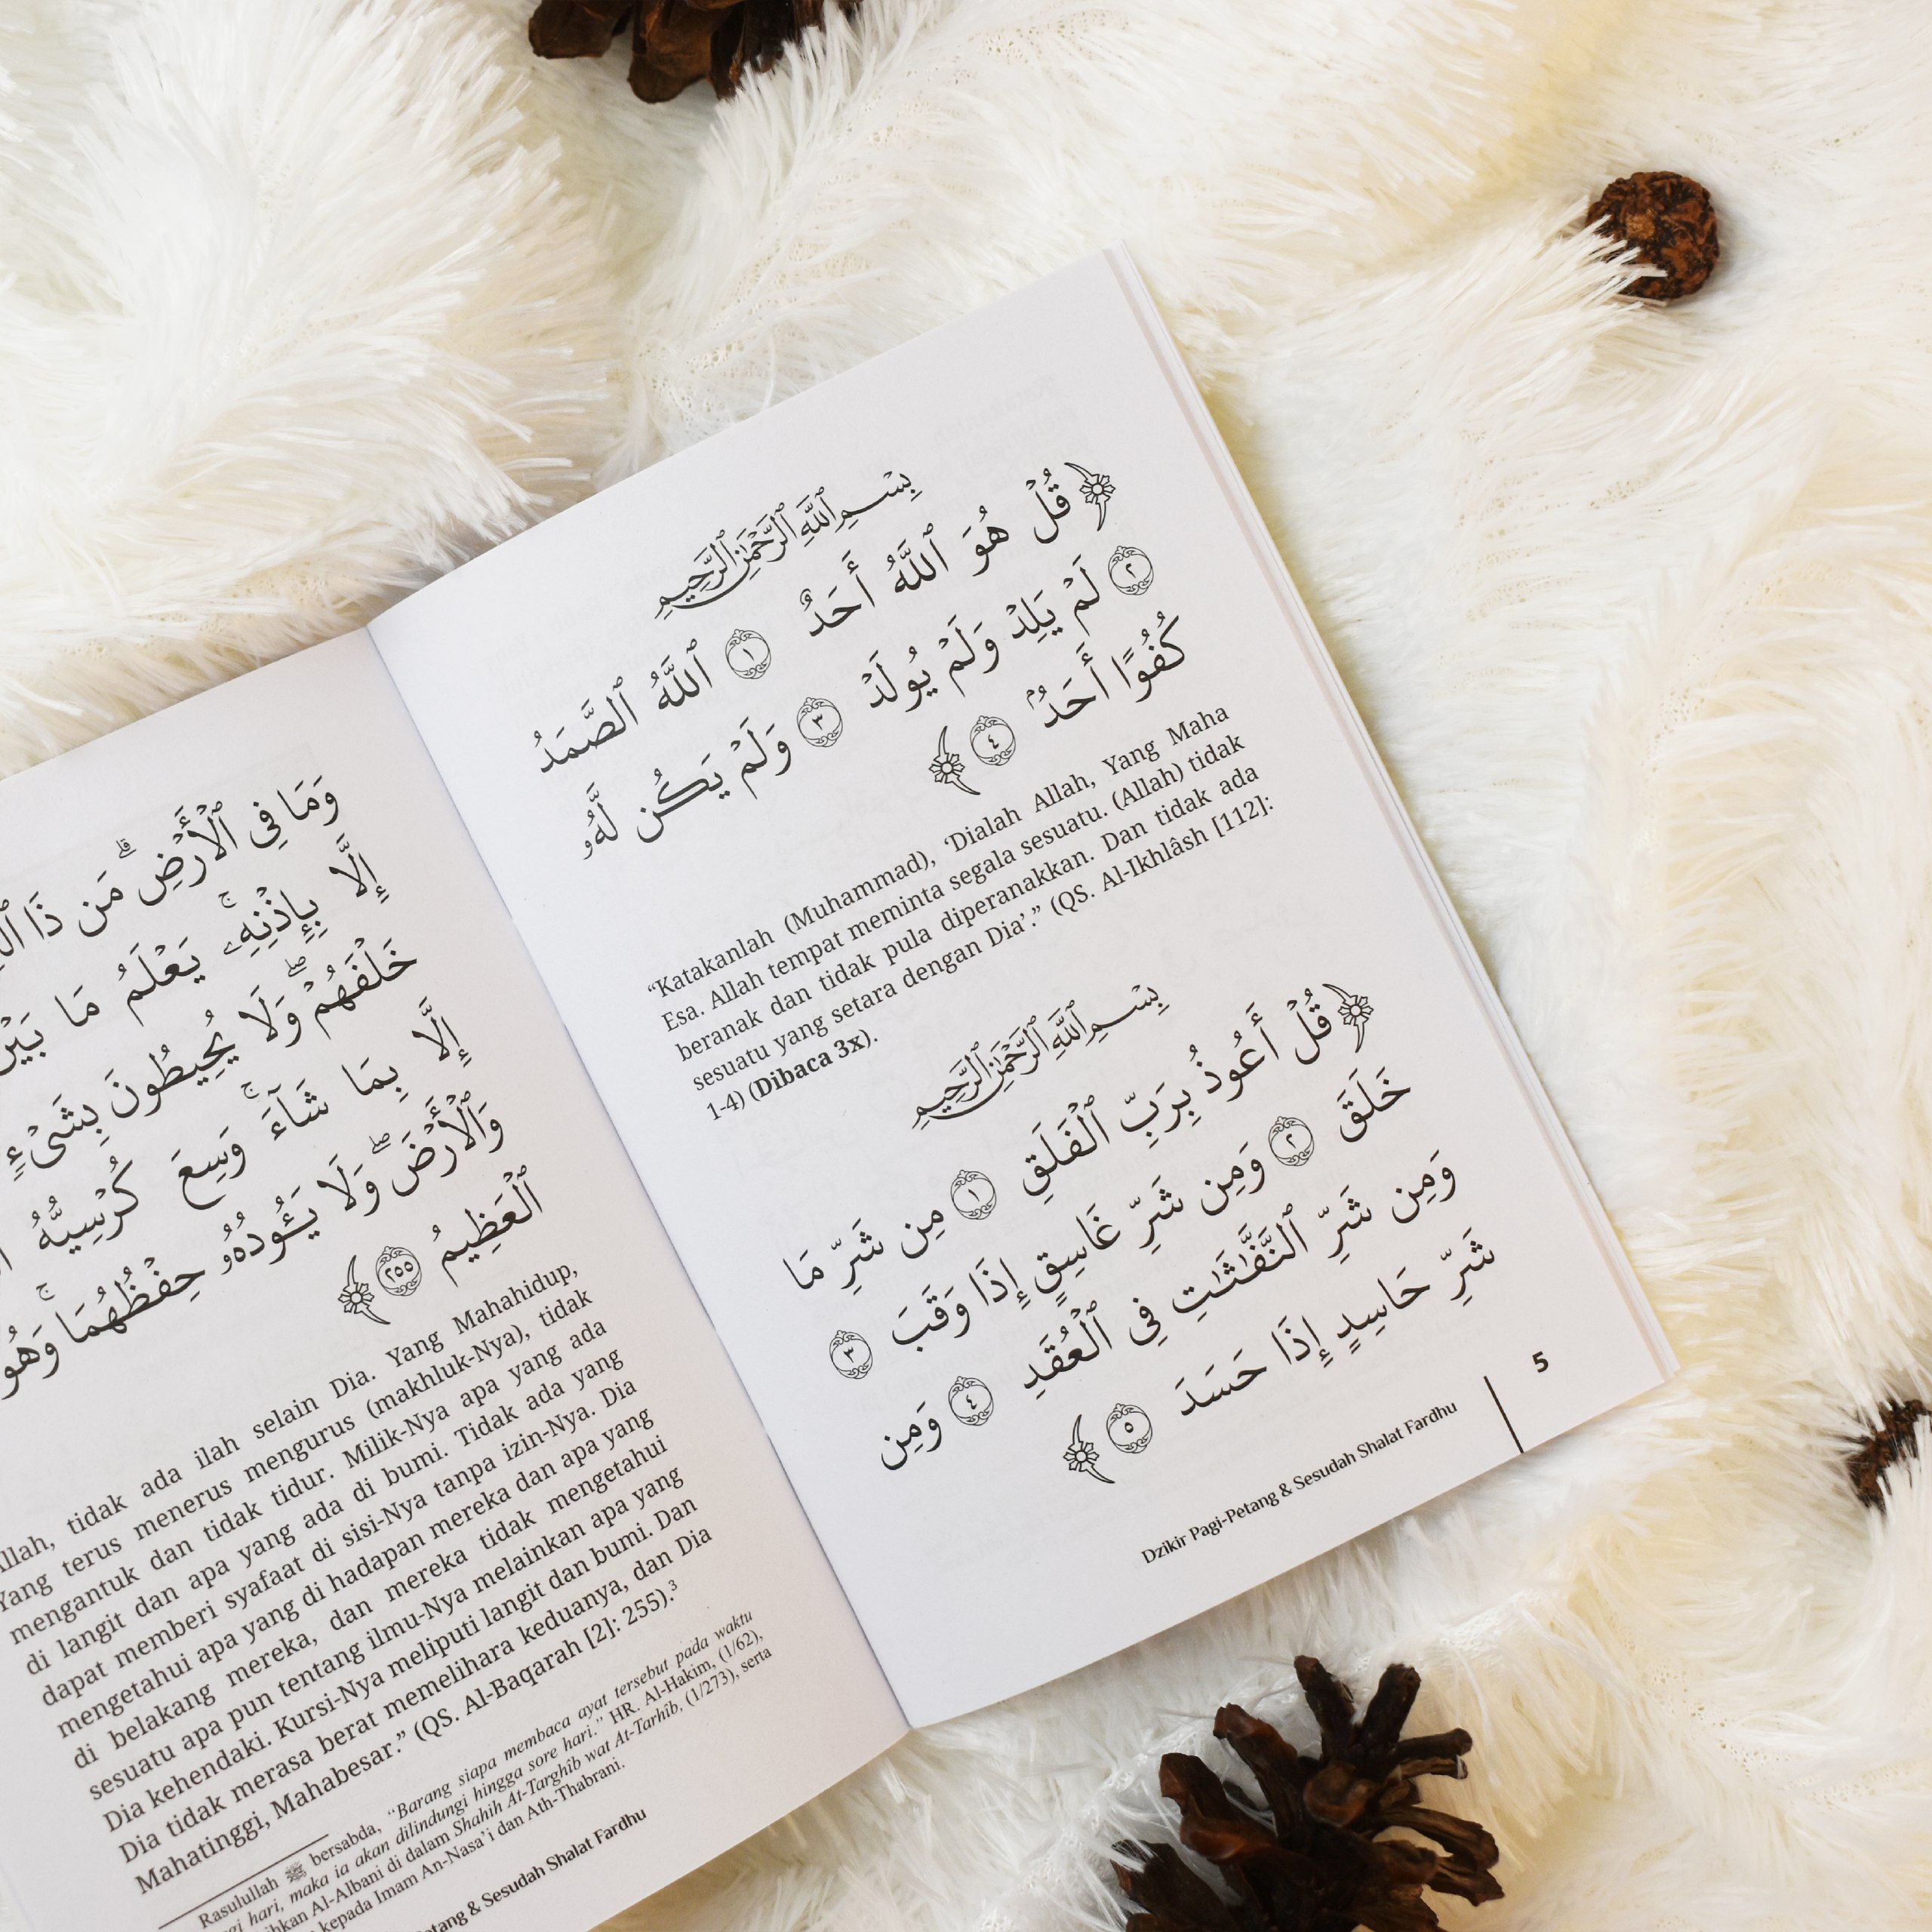 وَمَا فِي ٱلْأَرْضِۗ مَن ذَا
إِلَّا بِإِذْنِهِۦۚ يَعْلَمُ مَا بَيْنَ
خَلْفَهُمْۖ وَلَا يُحِيطُونَ بِشَىْءٍ
إِلَّا بِمَا شَآءَۚ وَسِعَ كُرْسِيُّهُ
وَٱلْأَرْضَۖ وَلَا يَـُٔودُهُۥ حِفْظُهُمَاۚ وَهُوَ
ٱلْعَظِيمُ ٢٥٥
Allah, tidak ada ilah selain Dia. Yang Mahahidup,
Yang terus menerus mengurus (makhluk-Nya), tidak
mengantuk dan tidak tidur. Milik-Nya apa yang ada
di langit dan apa yang ada di bumi. Tidak ada yang
dapat memberi syafaat di sisi-Nya tanpa izin-Nya. Dia
mengetahui apa yang di hadapan mereka dan apa yang
di belakang mereka, dan mereka tidak mengetahui
sesuatu apa pun tentang ilmu-Nya melainkan apa yang
Dia kehendaki. Kursi-Nya meliputi langit dan bumi. Dan
Dia tidak merasa berat memelihara keduanya, dan Dia
Mahatinggi, Mahabesar.” (QS. Al-Baqarah [2]: 255).³
Rasulullah ﷺ bersabda, “Barang siapa membaca ayat tersebut pada waktu
hari, maka ia akan dilindungi hingga sore hari.” HR. Al-Hakim, (1/62),
Al-Albani di dalam Shahih At-Targhîb wat At-Tarhîb, (1/273), serta
kepada Imam An-Nasa’i dan Ath-Thabrani.
& Sesudah Shalat Fardhu
بِسْمِ ٱللَّهِ ٱلرَّحْمَٰنِ ٱلرَّحِيمِ
﴿قُلْ هُوَ ٱللَّهُ أَحَدٌ ١ ٱللَّهُ ٱلصَّمَدُ
٢ لَمْ يَلِدْ وَلَمْ يُولَدْ ٣ وَلَمْ يَكُن لَّهُۥ
كُفُوًا أَحَدٌۢ ٤﴾
“Katakanlah (Muhammad), ‘Dialah Allah, Yang Maha
Esa. Allah tempat meminta segala sesuatu. (Allah) tidak
beranak dan tidak pula diperanakkan. Dan tidak ada
sesuatu yang setara dengan Dia’.” (QS. Al-Ikhlâsh [112]:
1-4) (Dibaca 3x).
بِسْمِ ٱللَّهِ ٱلرَّحْمَٰنِ ٱلرَّحِيمِ
﴿قُلْ أَعُوذُ بِرَبِّ ٱلْفَلَقِ ١ مِن شَرِّ مَا
خَلَقَ ٢ وَمِن شَرِّ غَاسِقٍ إِذَا وَقَبَ ٣
وَمِن شَرِّ ٱلنَّفَّٰثَٰتِ فِي ٱلْعُقَدِ ٤ وَمِن
شَرِّ حَاسِدٍ إِذَا حَسَدَ ٥﴾
Dzikir Pagi-Petang & Sesudah Shalat Fardhu
5